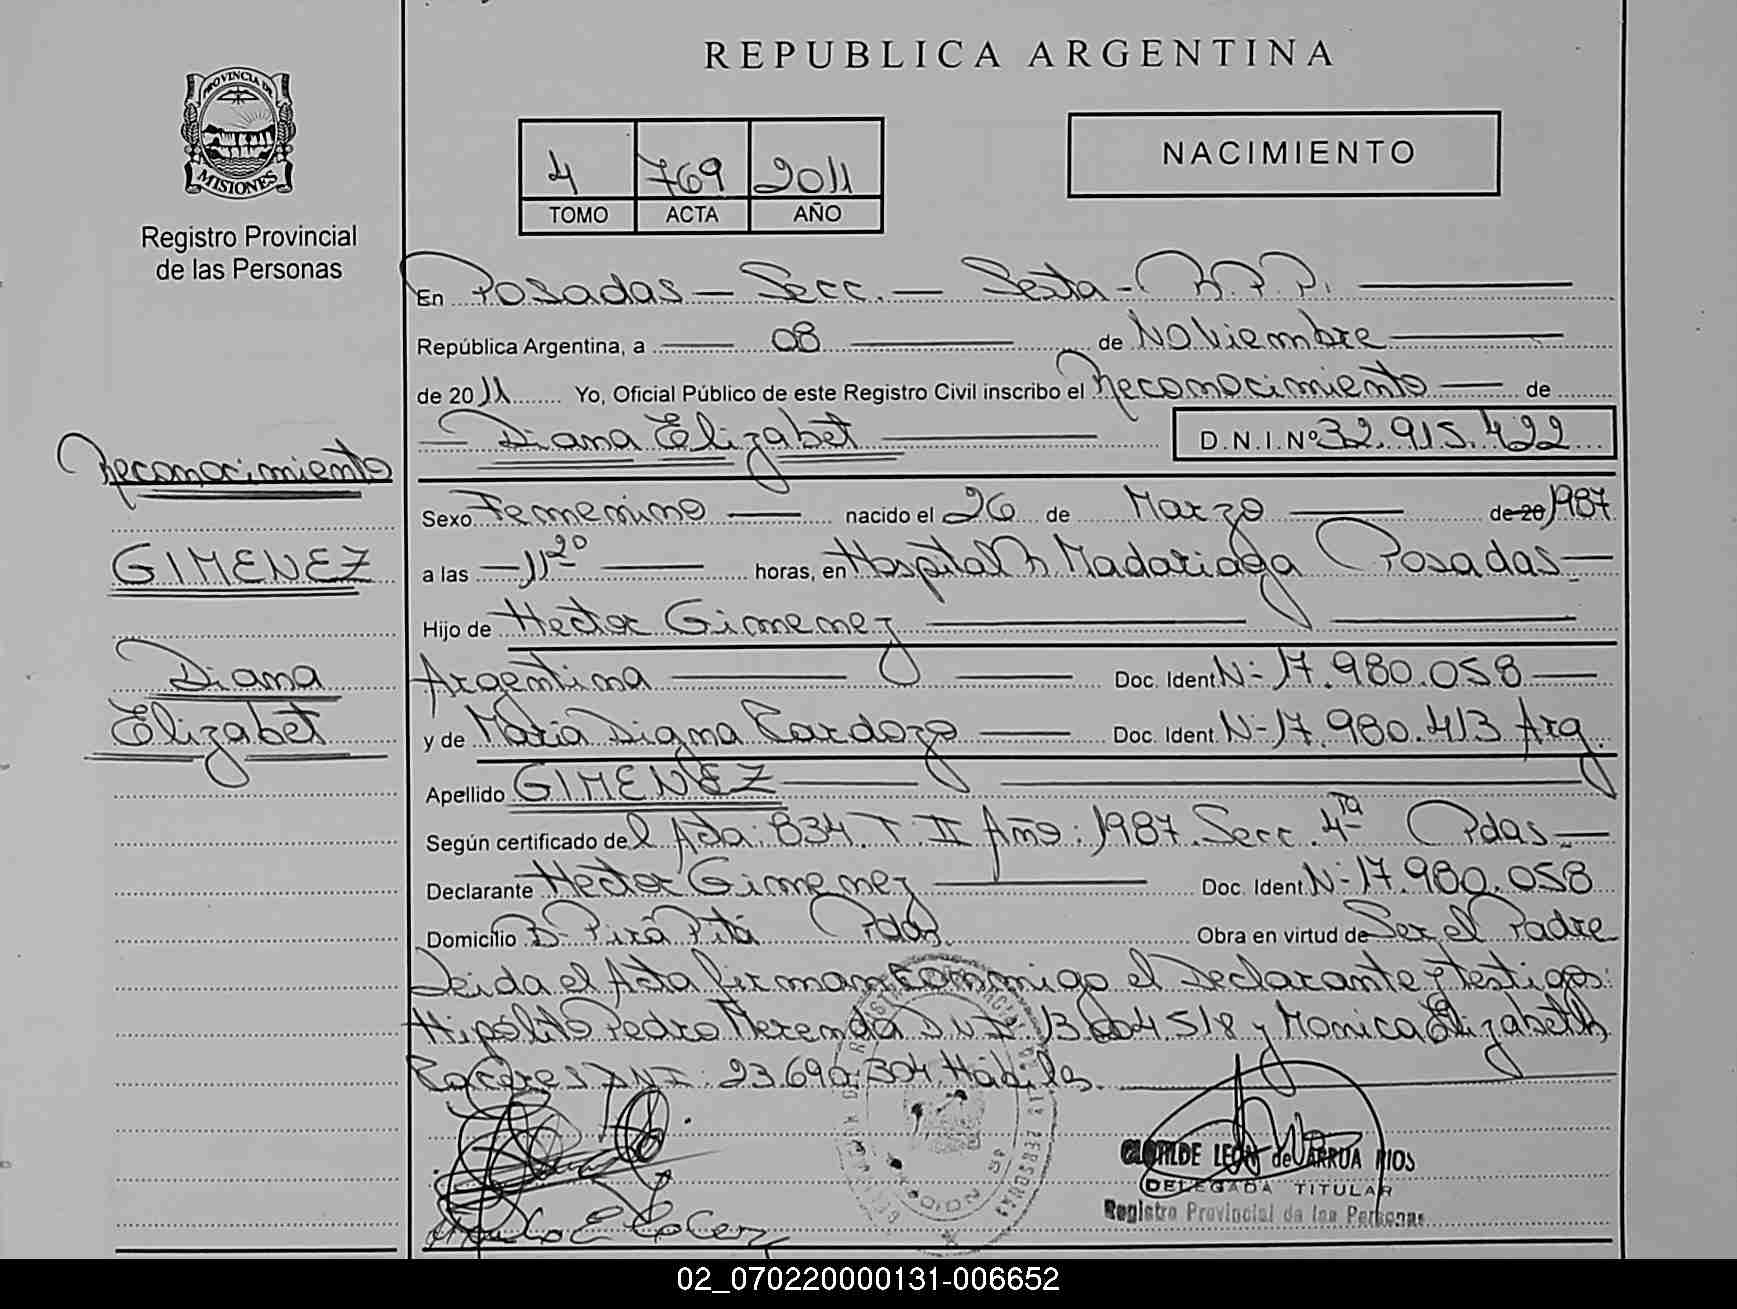 PROVINCIA DE
MISIONES
Registro Provincial
de las Personas
REPUBLICA ARGENTINA
4 769 2011
TOMO ACTA AÑO
NACIMIENTO
En Posadas - Secc. - Sexta - R.P.P.
República Argentina, a 08 de Noviembre
de 2011 Yo, Oficial Público de este Registro Civil inscribo el Reconocimiento de
Diana Elizabet D.N.I.Nº 32.915.422
Sexo Femenino nacido el 26 de Marzo de 20 1987
a las 11 20 horas, en Hospital R. Madariaga Posadas
Hijo de Hector Gimenez
Argentina Doc. Ident. Nº 17.980.058
y de Maria Digna Cardozo Doc. Ident. Nº 17.980.413 Arg.
Apellido GIMENEZ
Según certificado del Acta: 834. T. II Año: 1987. Secc. 4ta Pdas
Declarante Hector Gimenez Doc. Ident. Nº 17.980.058
Domicilio Bº Pirá Pitá Pdas. Obra en virtud de Ser el Padre
Leida el Acta firman conmigo el Declarante y testigos:
Hipólito Pedro Merenda D.N.I. 13. 4.518 y Monica Elizabeth
D.N.I: 23.690.304 Hábiles.
Reconocimiento
GIMENEZ
Diana
Elizabet
CLOTILDE LEON de VARRUA RIOS
DELEGADA TITULAR
Registro Provincial de las Personas
02_070220000131-006652